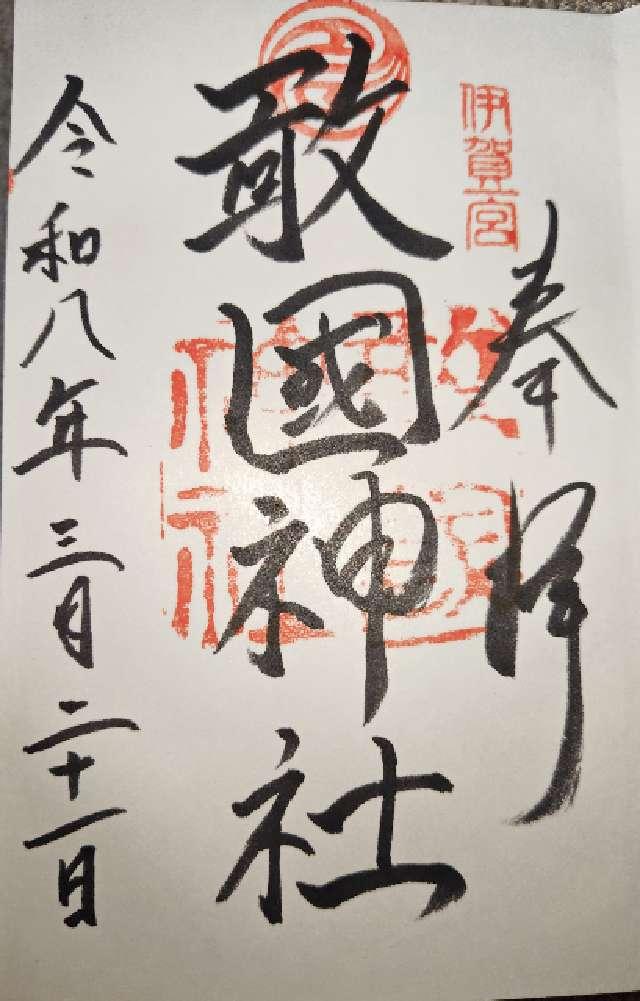 伊賀一宮
奉拝
敢國神社
令和八年三月二十一日